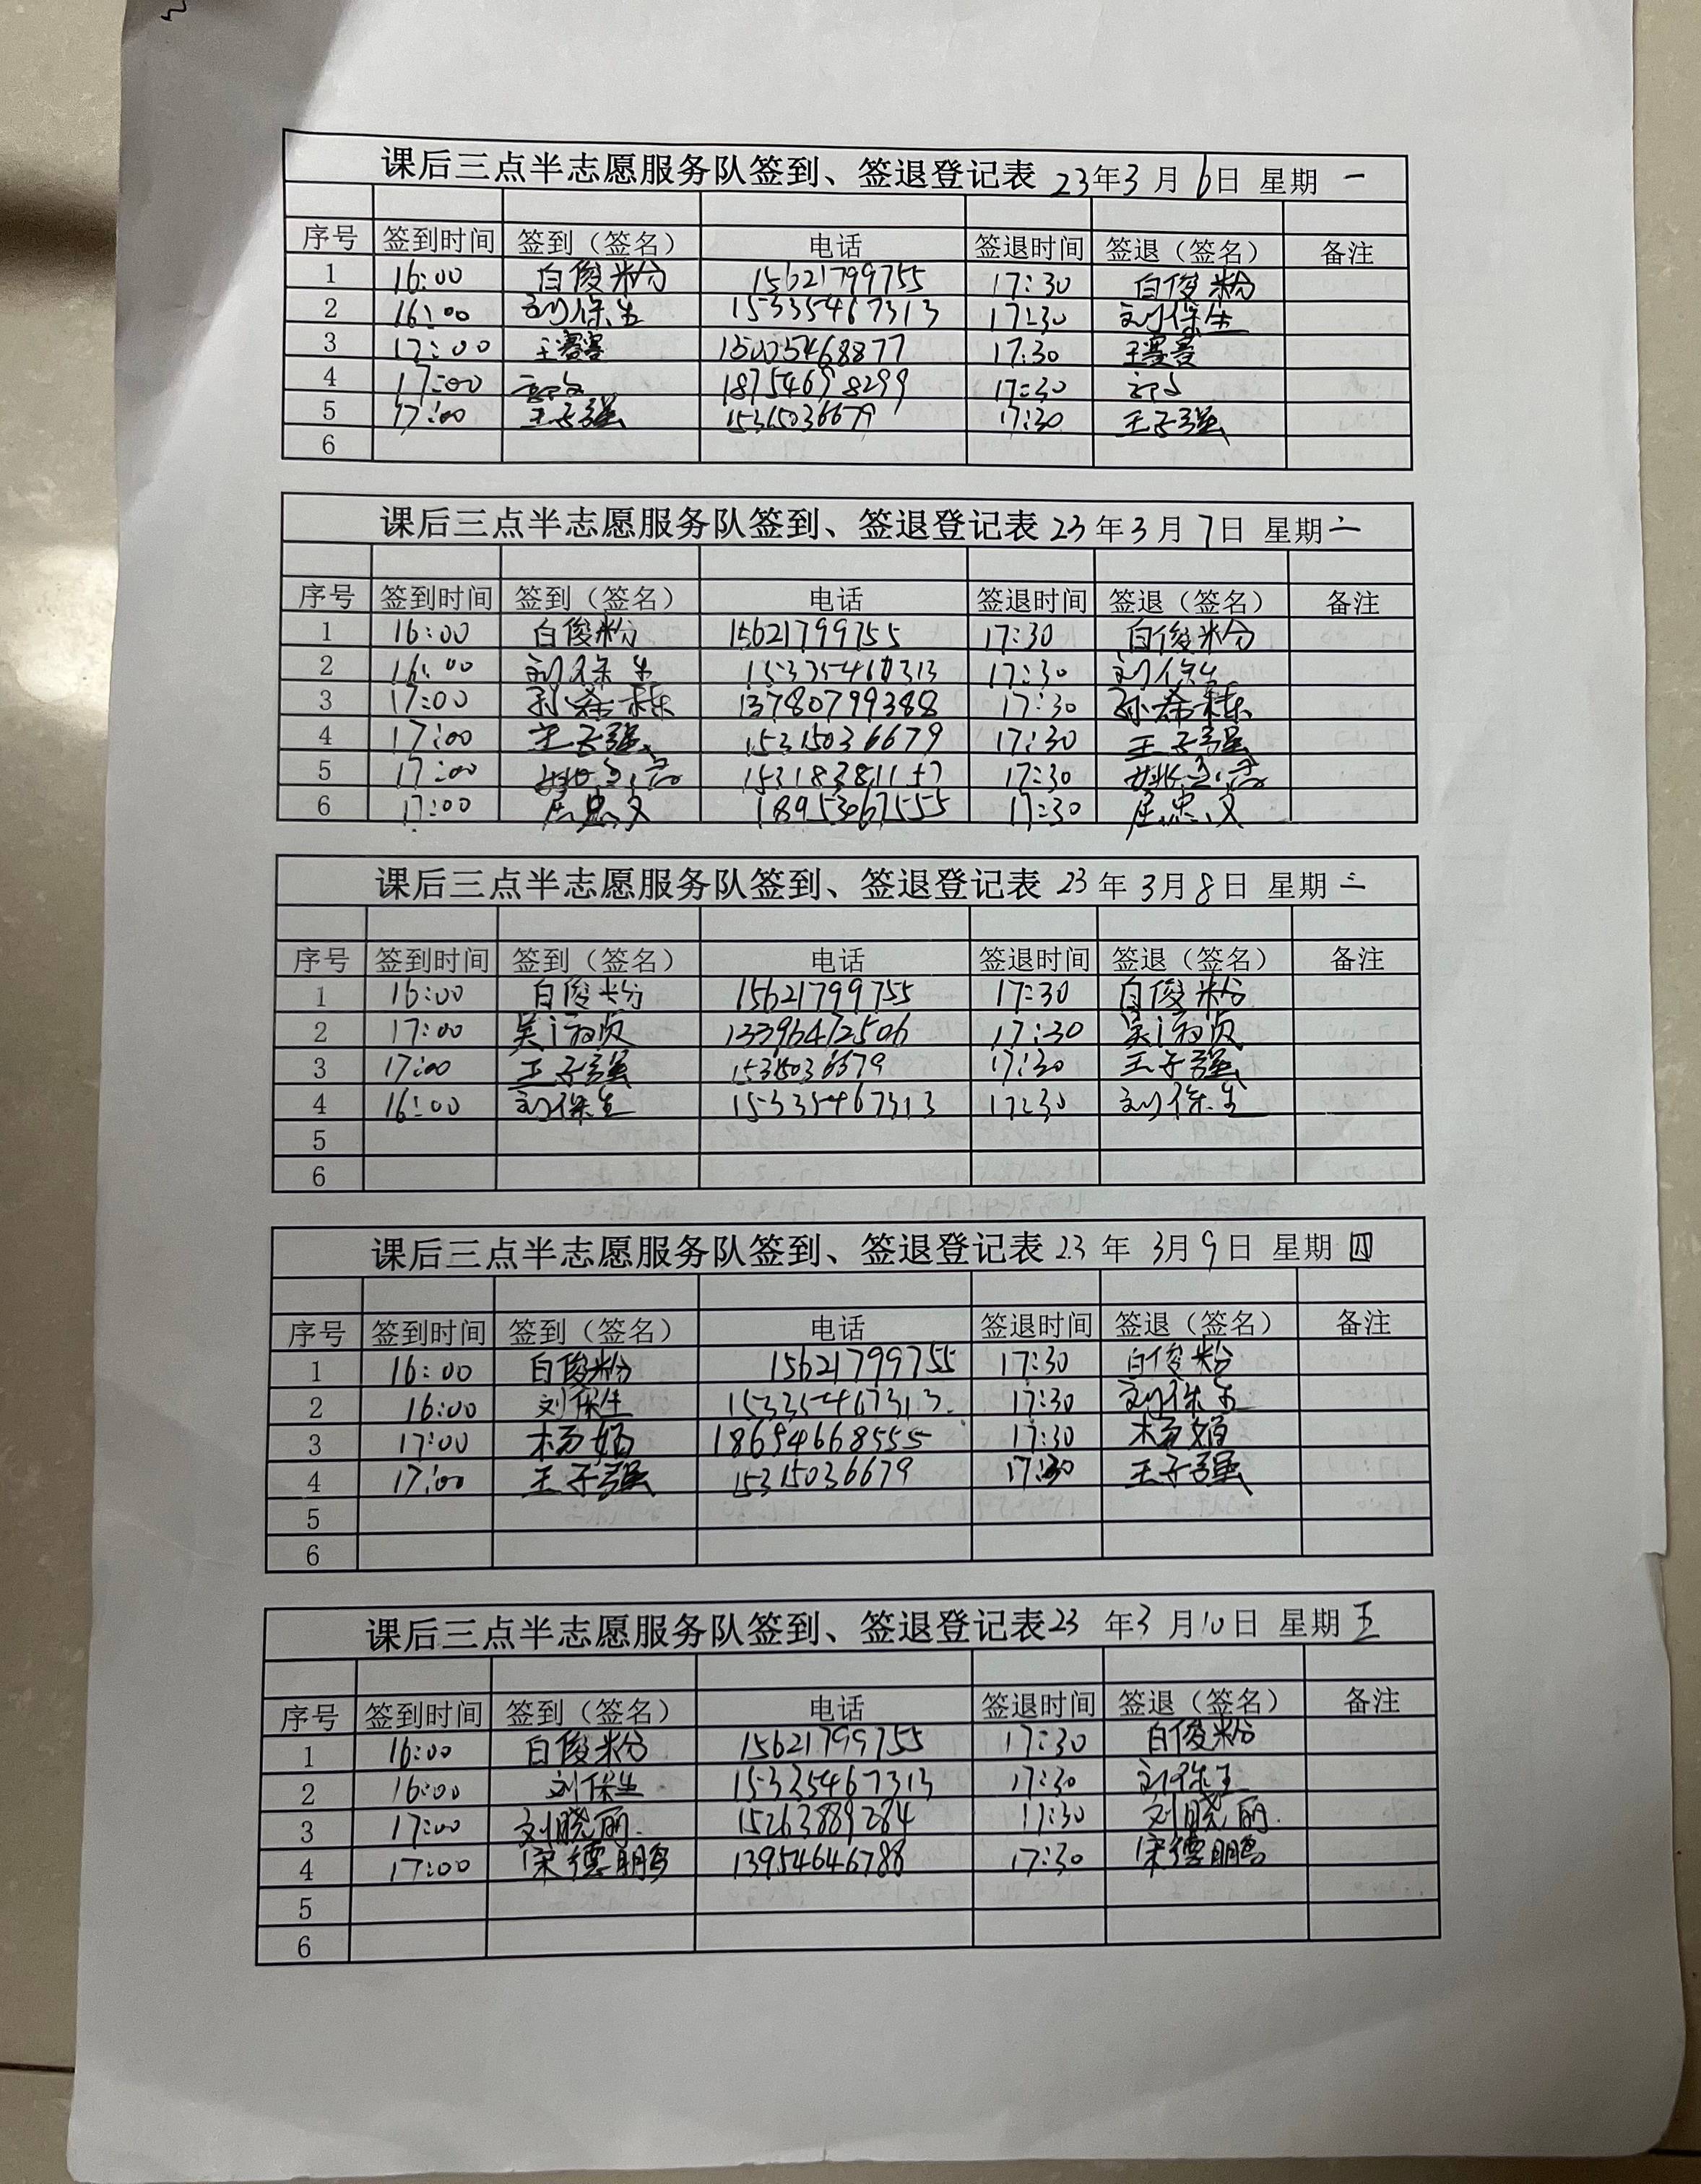 课后三点半志愿服务队签到、签退登记表 23年3月6日 星期一
序号 签到时间 签到（签名） 电话 签退时间 签退（签名） 备注
1 16:00 白俊粉 15621799755 17:30 白俊粉
2 16:00 刘保生 15335467313 17:30 刘保生
3 17:00 王赛赛 15005468877 17:30 王赛赛
4 17:00 18754698299 17:30
5 17:00 王子强 15315036679 17:30 王子强
6
课后三点半志愿服务队签到、签退登记表 23年3月7日 星期二
序号 签到时间 签到（签名） 电话 签退时间 签退（签名） 备注
1 16:00 白俊粉 15621799755 17:30 白俊粉
2 16:00 刘保生 17:30 刘保生
3 17:00 孙希栋 13780799388 17:30 孙希栋
4 17:00 王子强 15315036679 17:30 王子强
5 17:00 17:30
6 17:00 忠文 18953067555 17:30 忠文
课后三点半志愿服务队签到、签退登记表 23年3月8日 星期三
序号 签到时间 签到（签名） 电话 签退时间 签退（签名） 备注
1 16:00 白俊粉 15621799755 17:30 白俊粉
2 17:00 吴 13396472506 17:30 吴
3 17:00 王子强 17:30 王子强
4 16:00 刘保生 15335467313 17:30 刘保生
5
6
课后三点半志愿服务队签到、签退登记表 23年3月9日 星期四
序号 签到时间 签到（签名） 电话 签退时间 签退（签名） 备注
1 16:00 白俊粉 15621799755 17:30 白俊粉
2 16:00 刘保生 15335467313 17:30 刘保生
3 17:00 杨娟 18654668555 17:30 杨娟
4 17:00 王子强 15315036679 17:30 王子强
5
6
课后三点半志愿服务队签到、签退登记表 23年3月10日 星期五
序号 签到时间 签到（签名） 电话 签退时间 签退（签名） 备注
1 16:00 白俊粉 15621799755 17:30 白俊粉
2 16:00 刘保生 15335467313 17:30 刘保生
3 17:00 刘晓丽 15263889284 17:30 刘晓丽
4 17:00 宋德鹏 13954646788 17:30 宋德鹏
5
6